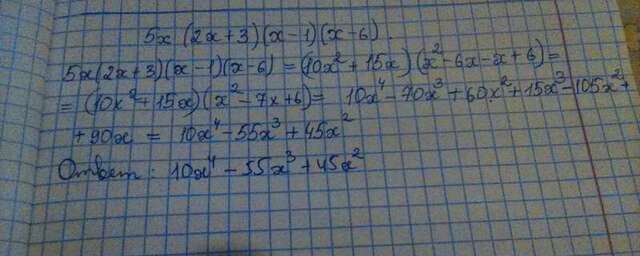 5x (2x+3)(x-1)(x-6).
5x(2x+3)(x-1)(x-6) = (10x²+15x)(x²-6x-x+6)=
= (10x²+15x)(x²-7x+6)= 10x⁴-70x³+60x²+15x³-105x²+
+90x = 10x⁴-55x³+45x²
Ответ: 10x⁴-55x³+45x²